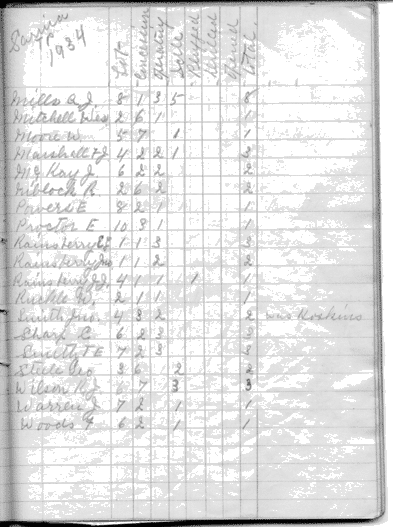 Sarnia
Tp
1934
Lot Concession Quantity Sold Skipped Killed Opened Total
Mills A J. 8 1 3 5 8
Mitchell 2 6 1 1
Moore W. 5 7 1 1
Marshall F J 4 2 2 1 3
Mc Kay J 6 2 2 2
Niblock R. 2 6 2 2
Powers E 8 2 1 1
Proctor E 10 3 1 1
Rainsberry 1 1 3 3
Rainsberry 1 1 2 2
Rainsberry J J, 4 1 1 1 1
Ruckle W, 2 1 1 1
Smith Jno 4 3 2 2 was Hoskins
Sharp C 6 2 3 3
Smith T E 7 2 3 3
Steele Geo 3 6 2 2
Wilson R J. 6 7 3 3
Warren J 7 2 1 1
Woods F 6 2 1 1